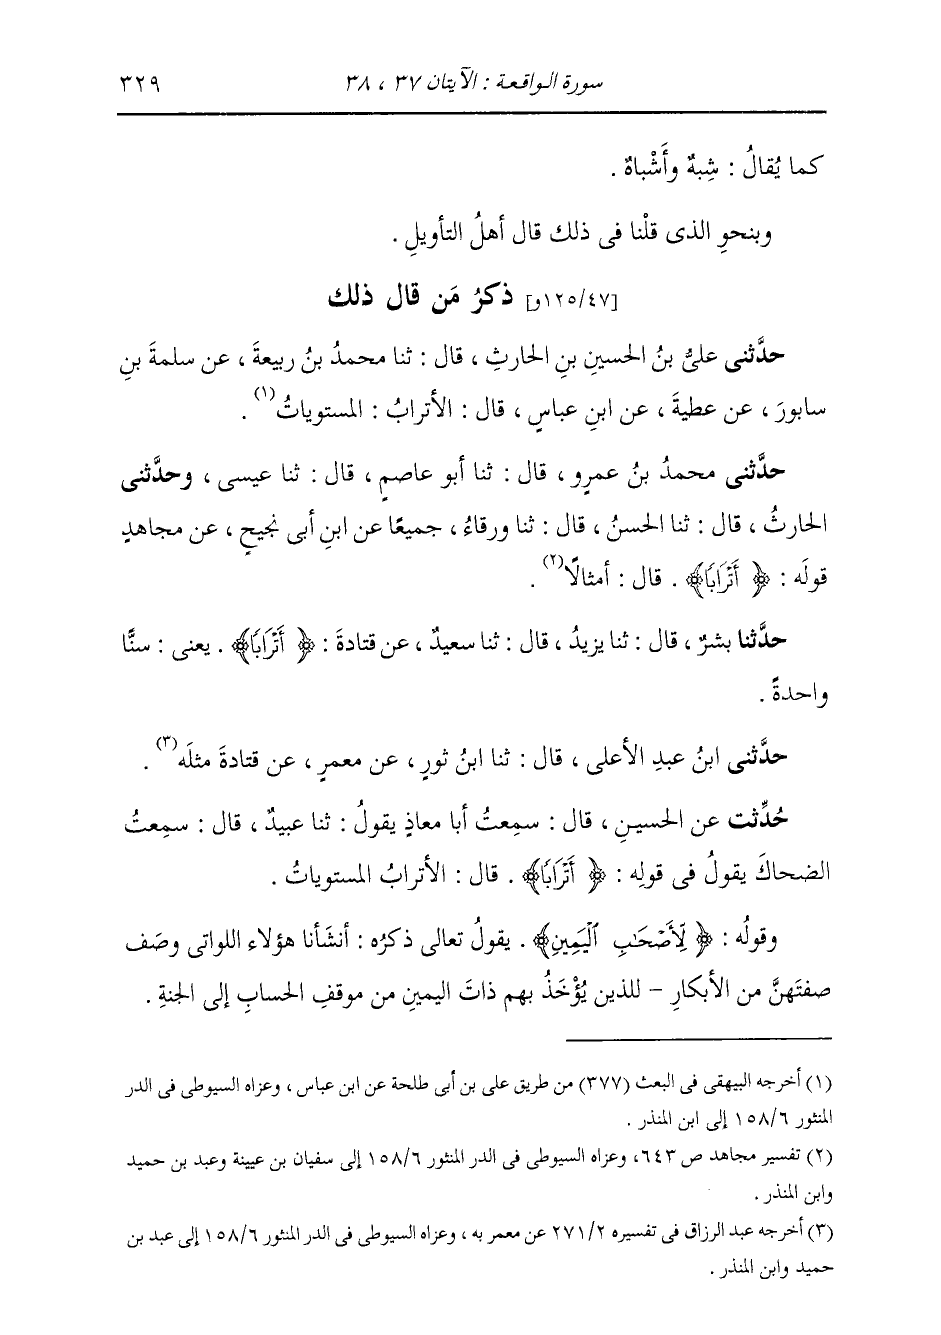 سورة الواقعة : الآيتان ٣٧ ، ٣٨ ٣٢٩
كما يُقالُ : شِبهٌ وأَشْباهٌ .
وبنحوِ الذى قلْنا فى ذلك قال أهلُ التأويلِ .
[١٢٥/٤٧و] ذكرُ مَن قال ذلك
حدَّثنى علىُّ بنُ الحسينِ بنِ الحارثِ ، قال : ثنا محمدُ بنُ ربيعةَ ، عن سلمةَ بنِ
سابورَ ، عن عطيةَ ، عن ابنِ عباسٍ ، قال : الأترابُ : المستوياتُ(١) .
حدَّثنى محمدُ بنُ عمرٍو ، قال : ثنا أبو عاصمٍ ، قال : ثنا عيسى ، وحدَّثنى
الحارثُ ، قال : ثنا الحسنُ ، قال : ثنا ورقاءُ ، جميعًا عن ابنِ أبى نجيحٍ ، عن مجاهدٍ
قولَه : ﴿ أَتْرَابًا ﴾ . قال : أمثالًا(٢) .
حدَّثنا بشرٌ ، قال : ثنا يزيدُ ، قال : ثنا سعيدٌ ، عن قتادةَ : ﴿ أَتْرَابًا ﴾ . يعنى : سنًّا
واحدةً .
حدَّثنى ابنُ عبدِ الأعلى ، قال : ثنا ابنُ ثورٍ ، عن معمرٍ ، عن قتادةَ مثلَه(٣) .
حُدِّثت عن الحسينِ ، قال : سمِعتُ أبا معاذٍ يقولُ : ثنا عبيدٌ ، قال : سمِعتُ
الضحاكَ يقولُ فى قولِه : ﴿ أَتْرَابًا ﴾ . قال : الأترابُ المستوياتُ .
وقولُه : ﴿ لِّأَصْحَٰبِ ٱلْيَمِينِ ﴾ . يقولُ تعالى ذكرُه : أنشَأنا هؤلاء اللواتى وصَف
صفتَهنَّ من الأبكارِ – للذين يُؤْخَذُ بهم ذاتَ اليمينِ من موقفِ الحسابِ إلى الجنةِ .
(١) أخرجه البيهقى فى البعث (٣٧٧) من طريق على بن أبى طلحة عن ابن عباس ، وعزاه السيوطى فى الدر
المنثور ١٥٨/٦ إلى ابن المنذر .
(٢) تفسير مجاهد ص ٦٤٣، وعزاه السيوطى فى الدر المنثور ١٥٨/٦ إلى سفيان بن عيينة وعبد بن حميد
وابن المنذر .
(٣) أخرجه عبد الرزاق فى تفسيره ٢٧١/٢ عن معمر به ، وعزاه السيوطى فى الدر المنثور ١٥٨/٦ إلى عبد بن
حميد وابن المنذر .